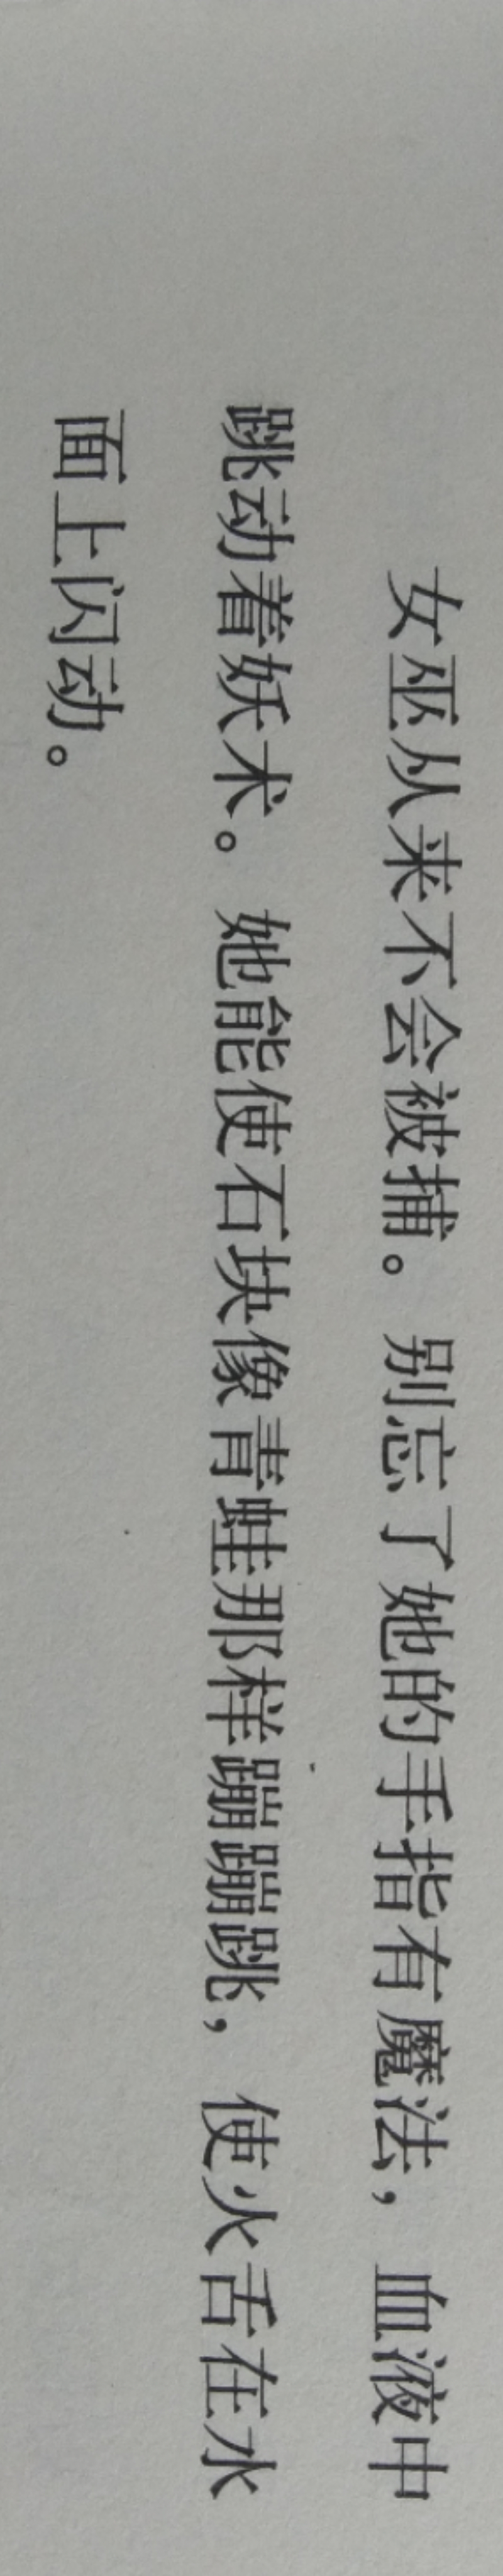 女巫从来不会被捕。别忘了她的手指有魔法，血液中
跳动着妖术。她能使石块像青蛙那样蹦蹦跳，使火舌在水
面上闪动。